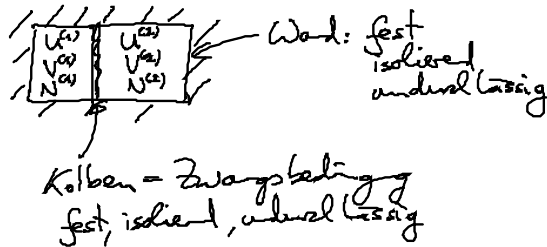 U⁽¹⁾ U⁽²⁾
V⁽¹⁾ V⁽²⁾
N⁽¹⁾ N⁽²⁾
Wand: fest
isolierend
undurchlässig
Kolben = Zwangsbedingung
fest, isolierend, undurchlässig